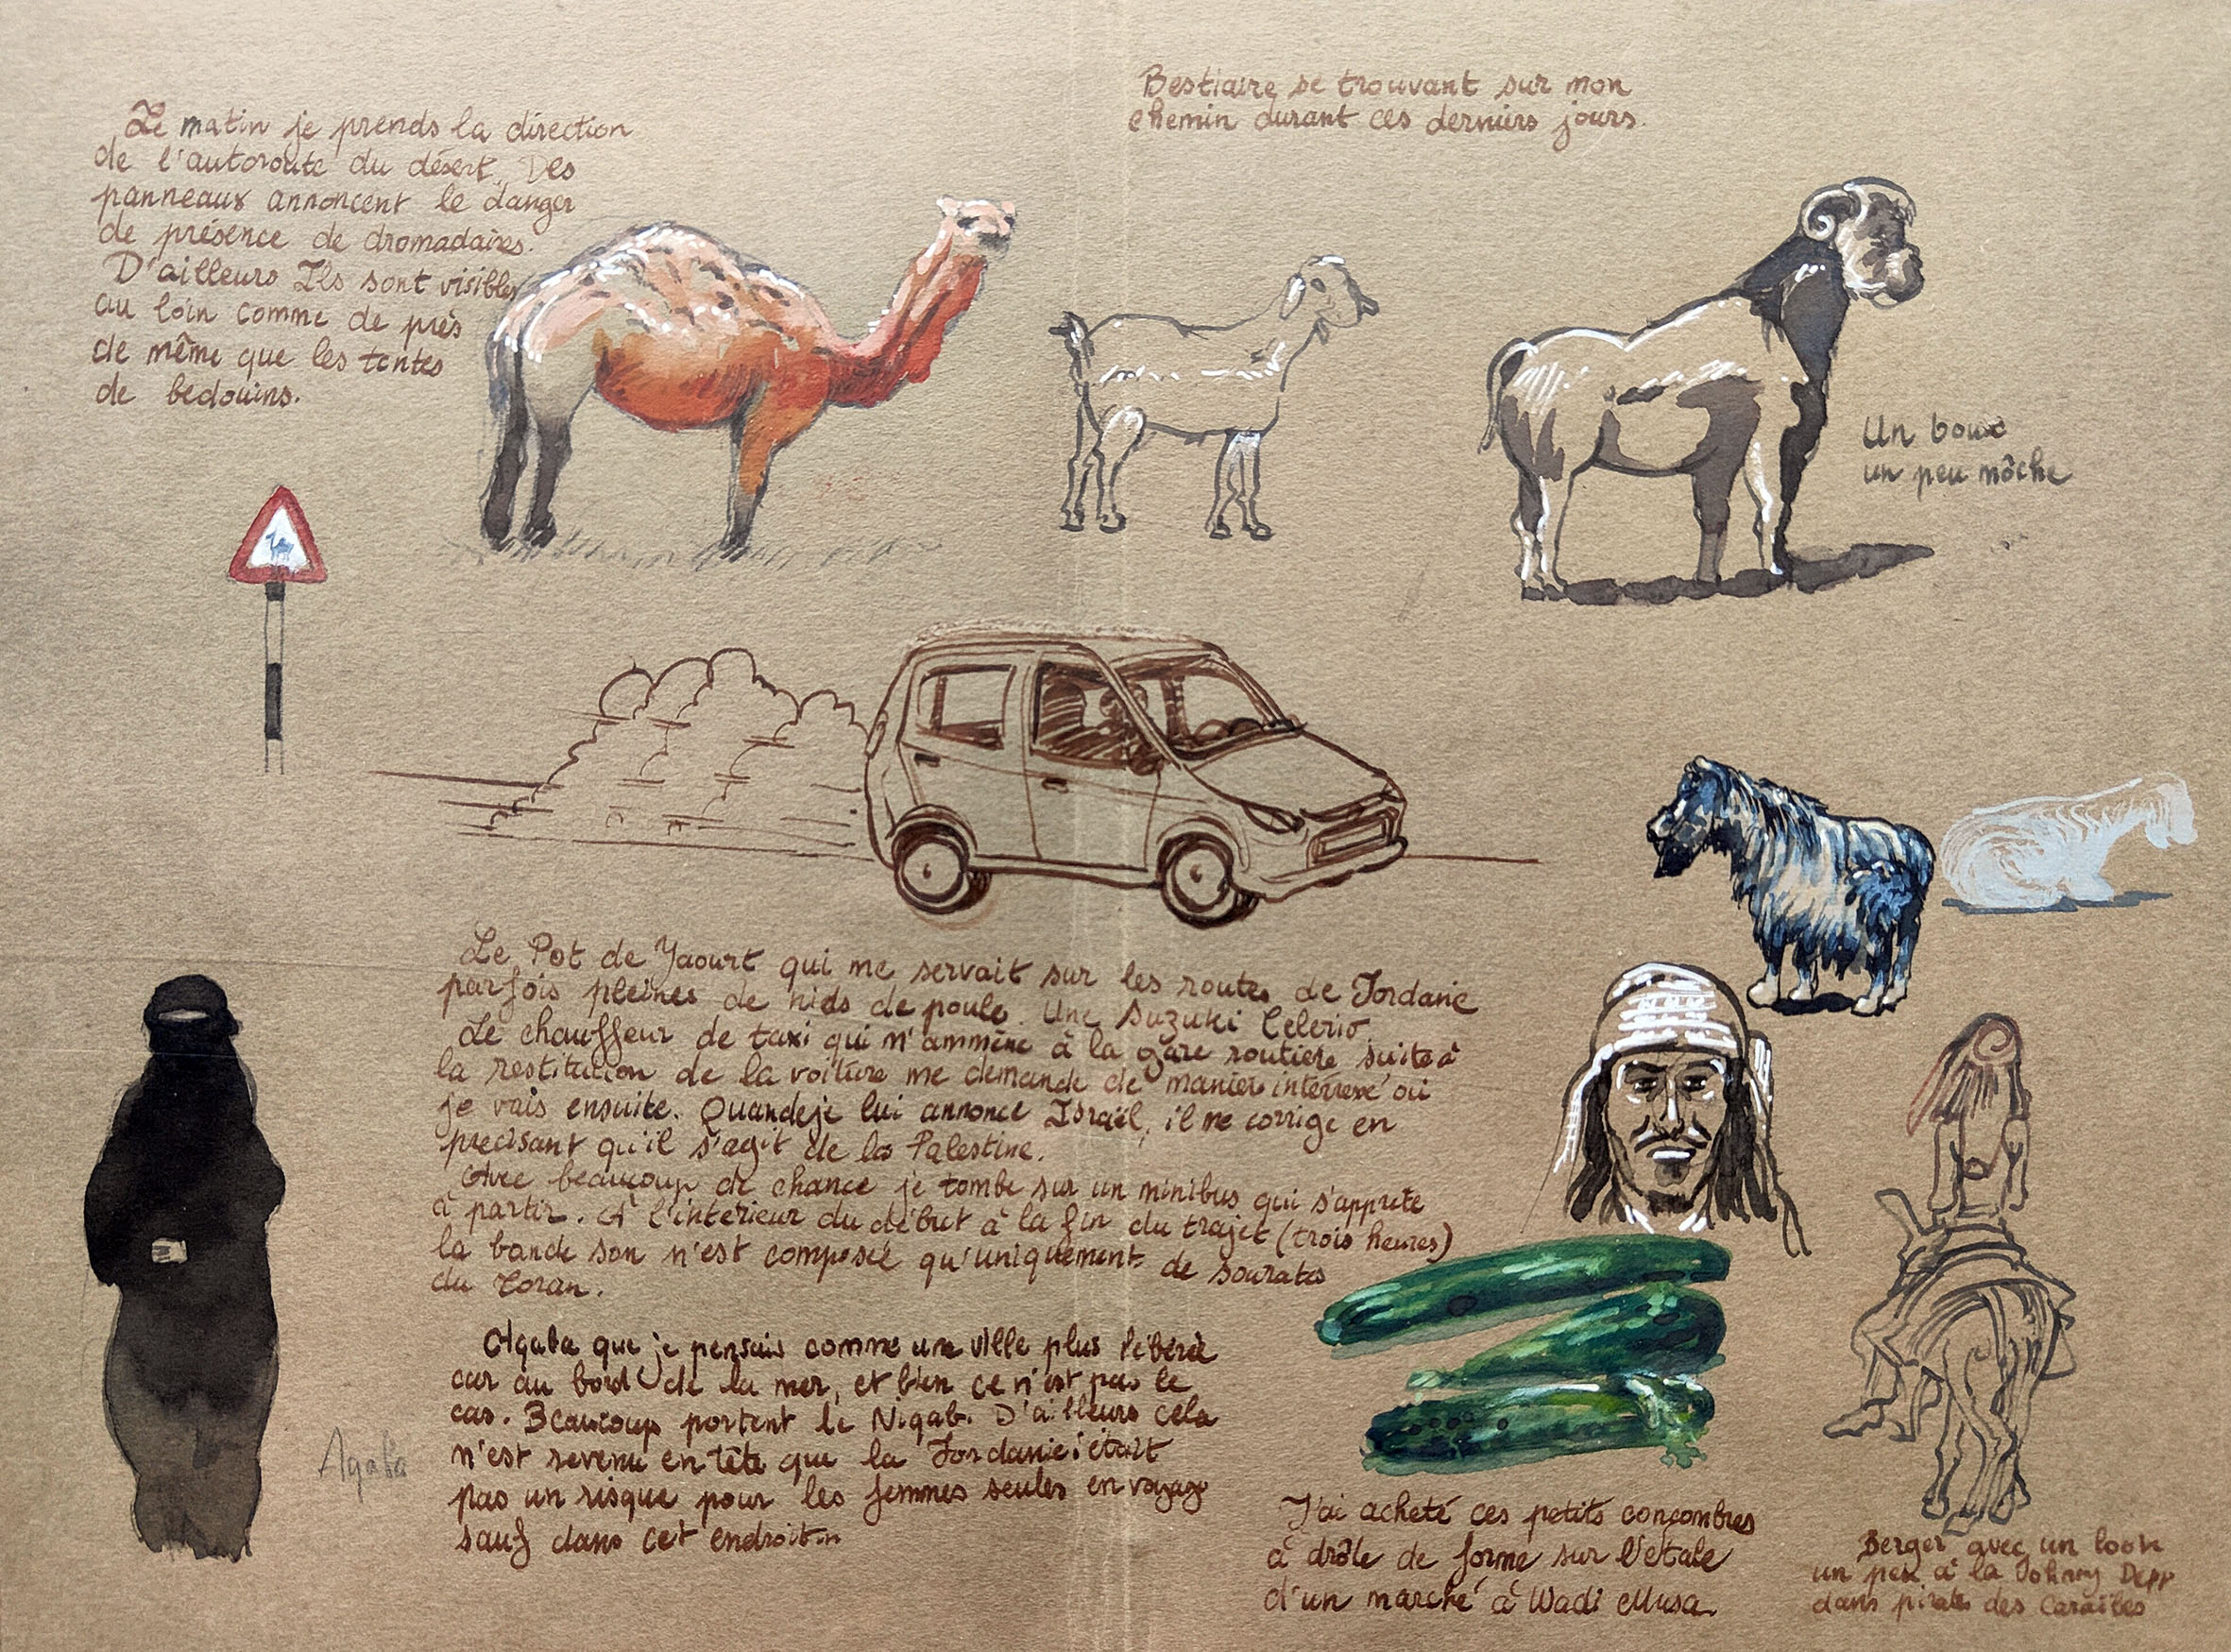 Le matin je prends la direction
de l'autoroute du désert. Des
panneaux annoncent le danger
de présence de dromadaires.
D'ailleurs Ils sont visibles
au loin comme de près
de même que les tentes
de bedouins.
Bestiaire se trouvant sur mon
chemin durant ces derniers jours.
Un bouc
un peu môche
Le Pot de Yaourt qui me servait sur les routes de Jordanie
parfois pleines de nids de poule. Une Suzuki Celerio.
Le chauffeur de taxi qui m'ammène à la gare routière suite à
la restitution de la voiture me demande de manier interressé où
je vais ensuite. Quande je lui annonce Israël, il me corrige en
precisant qu'il s'agit de la Palestine.
Avec beaucoup de chance je tombe sur un minibus qui s'apprète
à partir. A l'intérieur du début à la fin du trajet (trois heures)
la bande son n'est composée qu'uniquement de sourates
du Coran.
Aqaba que je pensais comme une ville plus libérée
car au bord de la mer, et bien ce n'est pas le
cas. Beaucoup portent le Niqab. D'ailleurs cela
m'est revenu en tête que la Jordanie était
pas un risque pour les femmes seules en voyage
sauf dans cet endroit...
Aqaba
J'ai acheté ces petits concombres
à drôle de forme sur l'étale
d'un marché à Wadi Musa.
Berger avec un look
un peu à la Johnny Depp
dans pirates des Caraïbes